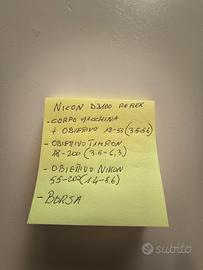 NIKON D3100 REFLEX
- CORPO MACCHINA
+ OBIETTIVO 18-55 (3.5-5.6)
- OBIETTIVO TAMRON
18-200 (3.5-6,3)
- OBIETTIVO NIKON
55-200 (4-5.6)
- BORSA
subito